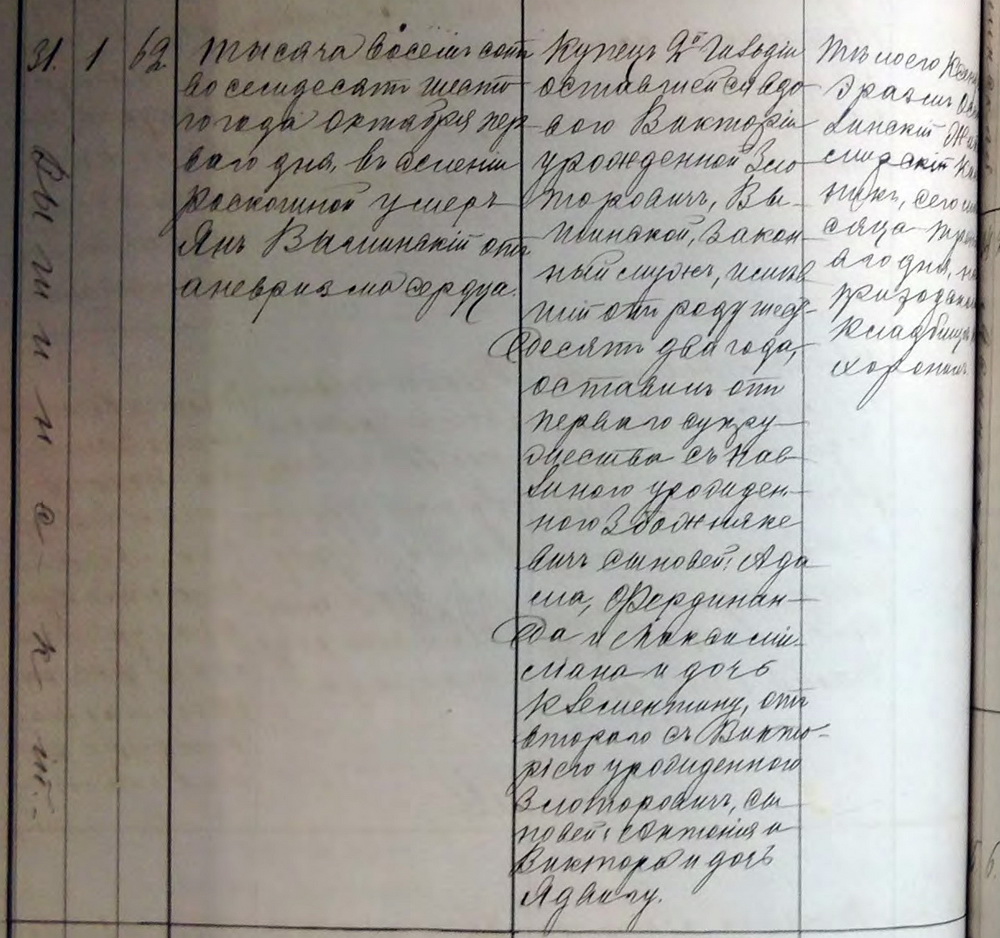 31. 1 62
Вышинскій.
Тысяча восемь сотъ
восемьдесятъ шесто
го года октября пер
ваго дня, въ селеніи
Раскошной умеръ
Янъ Вышинскій отъ
аневризма сердца.
Купецъ 2й Гильдіи
оставшейся вдо
вою Викторіи
урожденной Зло
торовичъ, Вы-
шинской, закон
ный мужъ, имѣв
шій отъ роду шесть
десятъ два года,
оставилъ отъ
перваго супру-
жества съ Пав
линою урожден-
ною Збожняке
вичъ сыновей: Ада
ма, Фердинан-
да и Максими-
ліана и дочь
Клементину, отъ
втораго съ Викто-
ріею урожденною
Злоторовичъ, сы
новей: Антонія и
Виктора и дочь
Ядвигу.
Тѣло его
Эразмъ
линскій
сего мѣ
сяца
аго дня, на
приходскомъ
кладбищѣ
хоронилъ